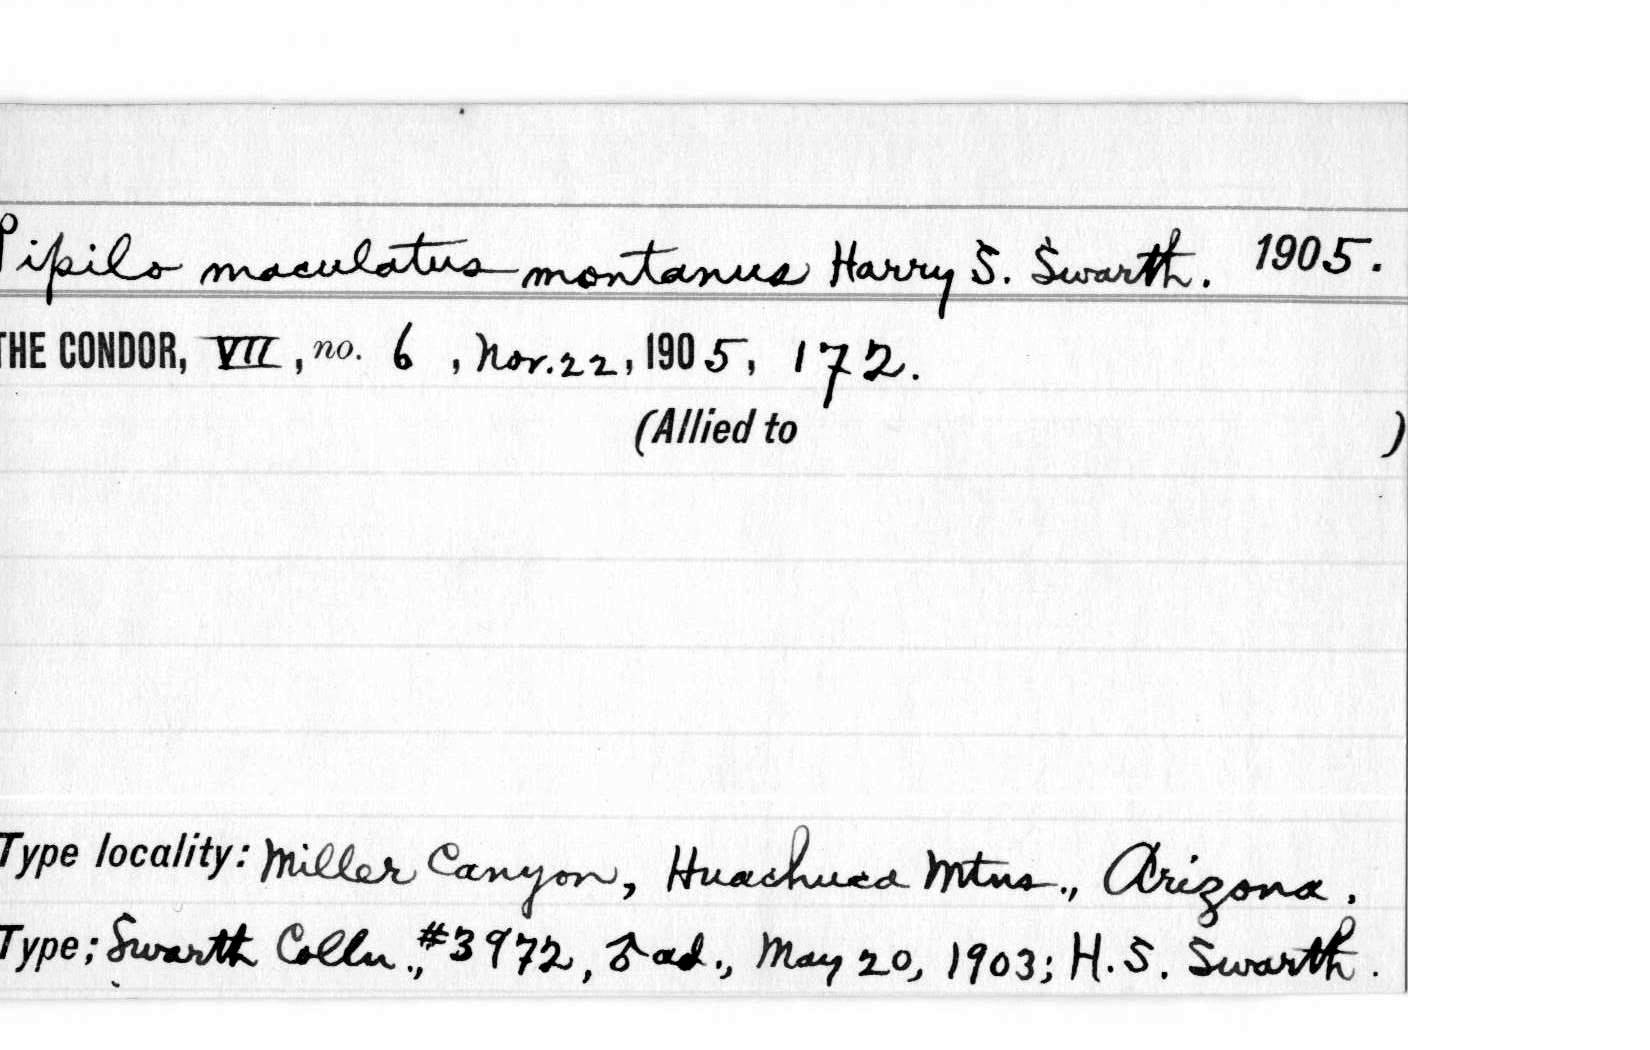 Pipilo maculatus montanus Harry S. Swarth. 1905.
THE CONDOR, VII, no. 6, Nov. 22, 1905, 172.
(Allied to )
Type locality: Miller Canyon, Huachuca Mtns., Arizona.
Type; Swarth Colln., #3972, ♂ ad., May 20, 1903; H. S. Swarth.